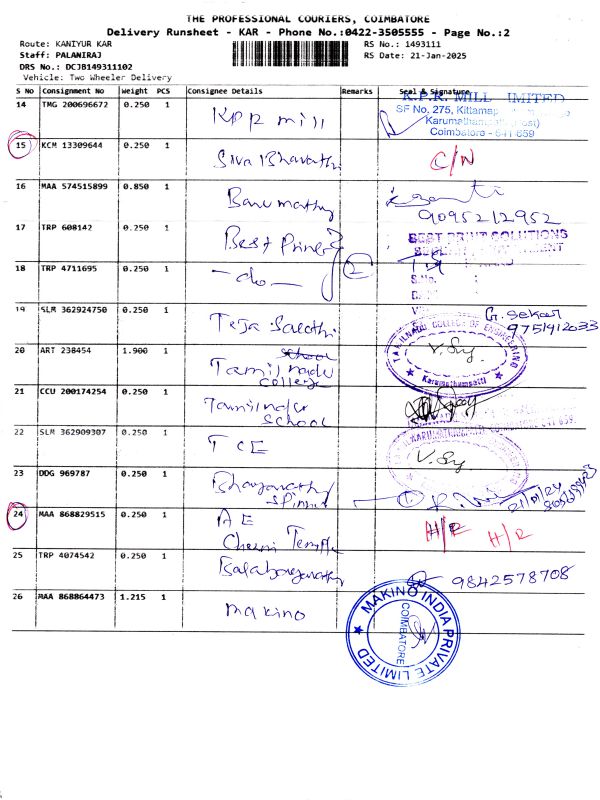 THE PROFESSIONAL COURIERS, COIMBATORE
Delivery Runsheet - KAR - Phone No.:0422-3505555 - Page No.:2
Route: KANIYUR KAR
RS No.: 1493111
Staff: PALANIRAJ
RS Date: 21-Jan-2025
DRS No.: DCJB149311102
Vehicle: Two Wheeler Delivery
S No Consignment No Weight PCS Consignee Details Remarks Seal & Signature
14 TMG 200696672 0.250 1 KPR mill K.P.R. MILL LIMITED
SF No. 275, Kittampa
Karumathampatti (Post)
Coimbatore - 641 659
15 KCM 13309644 0.250 1 Siva Bharathi C/N
16 MAA 574515899 0.850 1 Banumathy
9095212952
17 TRP 608142 0.250 1 Best Print BEST PRINT SOLUTIONS
18 TRP 4711695 0.250 1 -do- 2
S.No.
19 SLM 362924750 0.250 1 Teja Sakthi G. Sekar
9751912033
20 ART 238454 1.900 1 Tamilnadu school
college
TAMILNADU COLLEGE OF ENGINEERING
Karumathampatti
21 CCU 200174254 0.250 1 Tamilnadu
School
22 SLM 362909307 0.250 1 TCE
23 DDG 969787 0.250 1
24 MAA 868829515 0.250 1 A E
Chenni Temple H/R H/R
25 TRP 4074542 0.250 1 9842578708
26 MAA 868864473 1.215 1 makino
MAKINO INDIA PRIVATE LIMITED
COIMBATORE